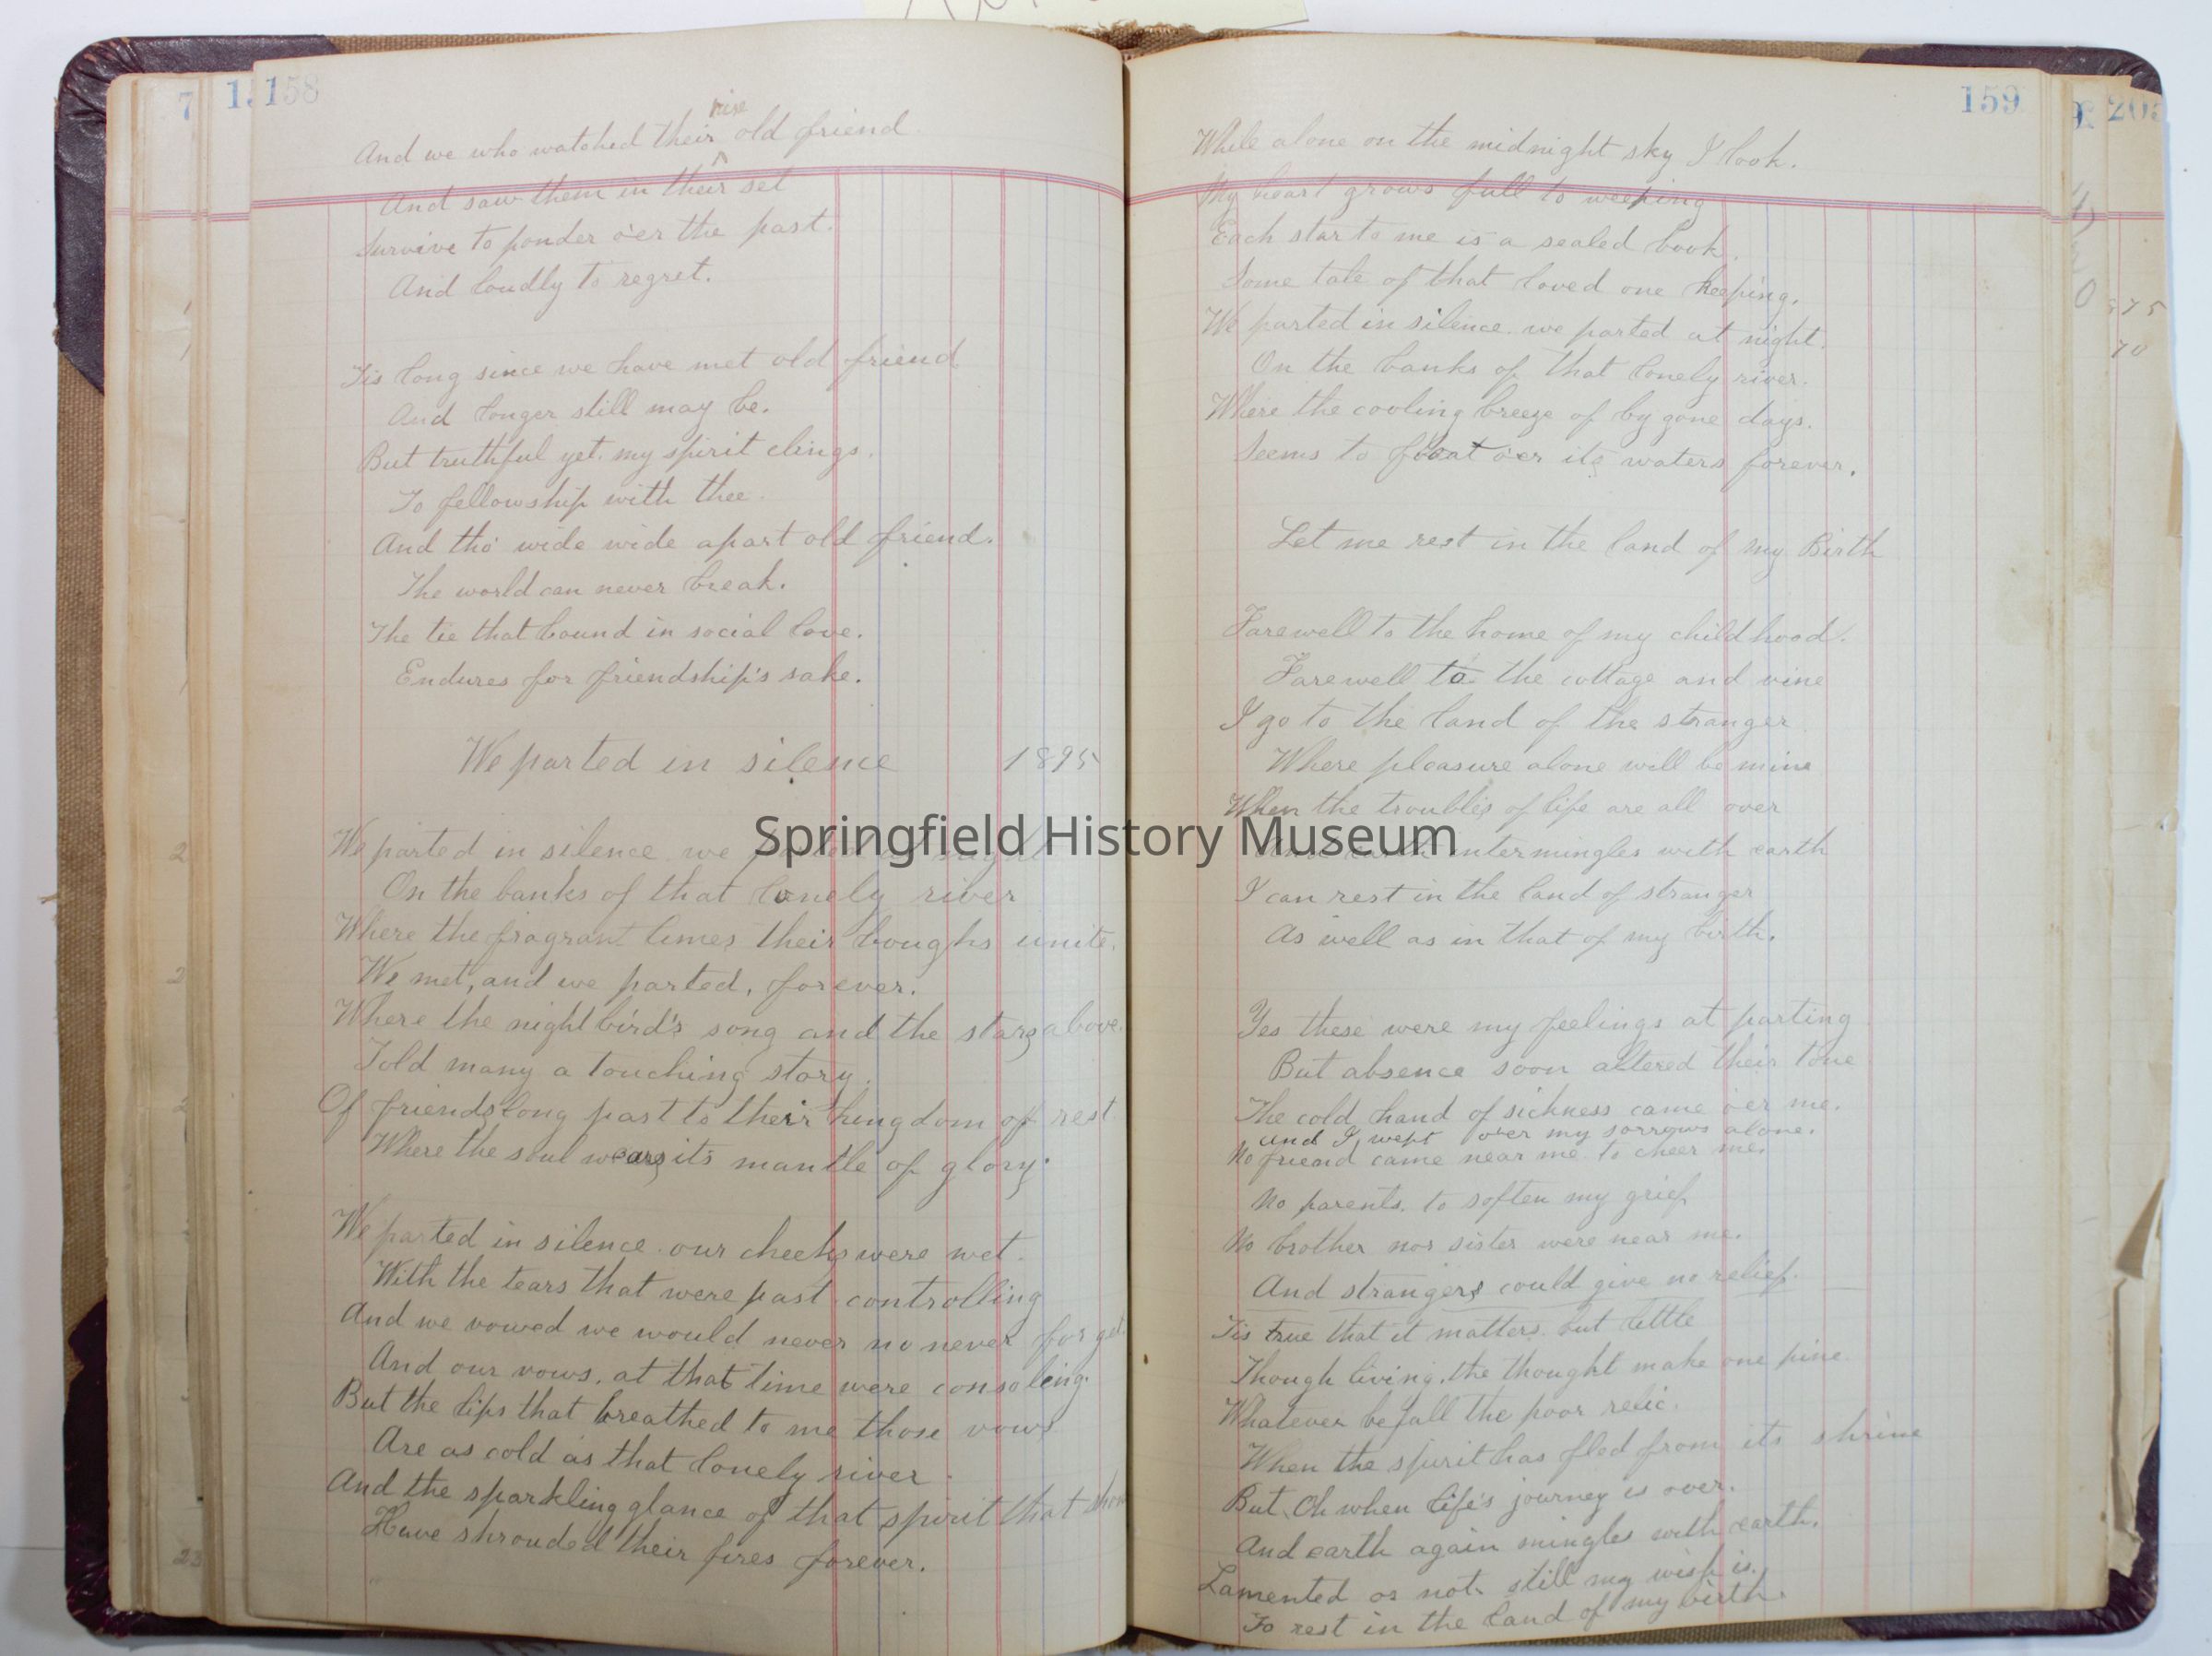 158
And we who watched their rise old friend.
And saw them in their set
Survive to ponder o'er the past.
And loudly to regret.
Tis long since we have met old friend
And longer still may be.
But truthful yet. my spirit clings.
To fellowship with thee.
And tho' wide wide apart old friend.
The world can never break.
The tie that bound in social love.
Endures for friendship's sake.
We parted in silence 1895
We parted in silence we parted at night
On the banks of that lonely river
Where the fragrant limes their boughs unite.
We met, and we parted, forever.
Where the night bird's song and the stars above.
Told many a touching story.
Of friends long past to their kingdom of rest
Where the soul wears its mantle of glory.
We parted in silence. our cheeks were wet.
With the tears that were past controlling
And we vowed we would never no never forget
And our vows, at that time were consoling.
But the lips that breathed to me those vows
Are as cold as that lonely river.
And the sparkling glance of that spirit that
Have shrouded their fires forever.
159
While alone on the midnight sky I look.
My heart grows full to weeping
Each star to me is a sealed book.
Some tale of that loved one keeping.
We parted in silence. we parted at night.
On the banks of that lonely river.
Where the cooling breeze of by gone days.
Seems to float o'er its waters forever.
Let me rest in the land of my Birth
Farewell to the home of my childhood.
Farewell to the cottage and vine
I go to the land of the stranger
Where pleasure alone will be mine
When the troubles of life are all over
And earth intermingles with earth
I can rest in the land of stranger
As well as in that of my birth.
Yes these were my feelings at parting
But absence soon altered their tone
The cold hand of sickness came o'er me.
and I wept over my sorrows alone.
No friend came near me to cheer me.
No parents. to soften my grief
No brother nor sister were near me.
And strangers could give no relief.
Tis true that it matters but little
Though living, the thought make one pine
Whatever befall the poor relic.
When the spirit has fled from its shrine
But Oh when life's journey is over.
And earth again mingles with earth.
Lamented or not still my wish is.
To rest in the land of my birth.
203
375
70
Springfield History Museum